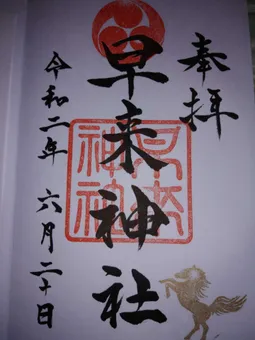 奉拝
早来神社
早来神社
令和二年 六月二十日